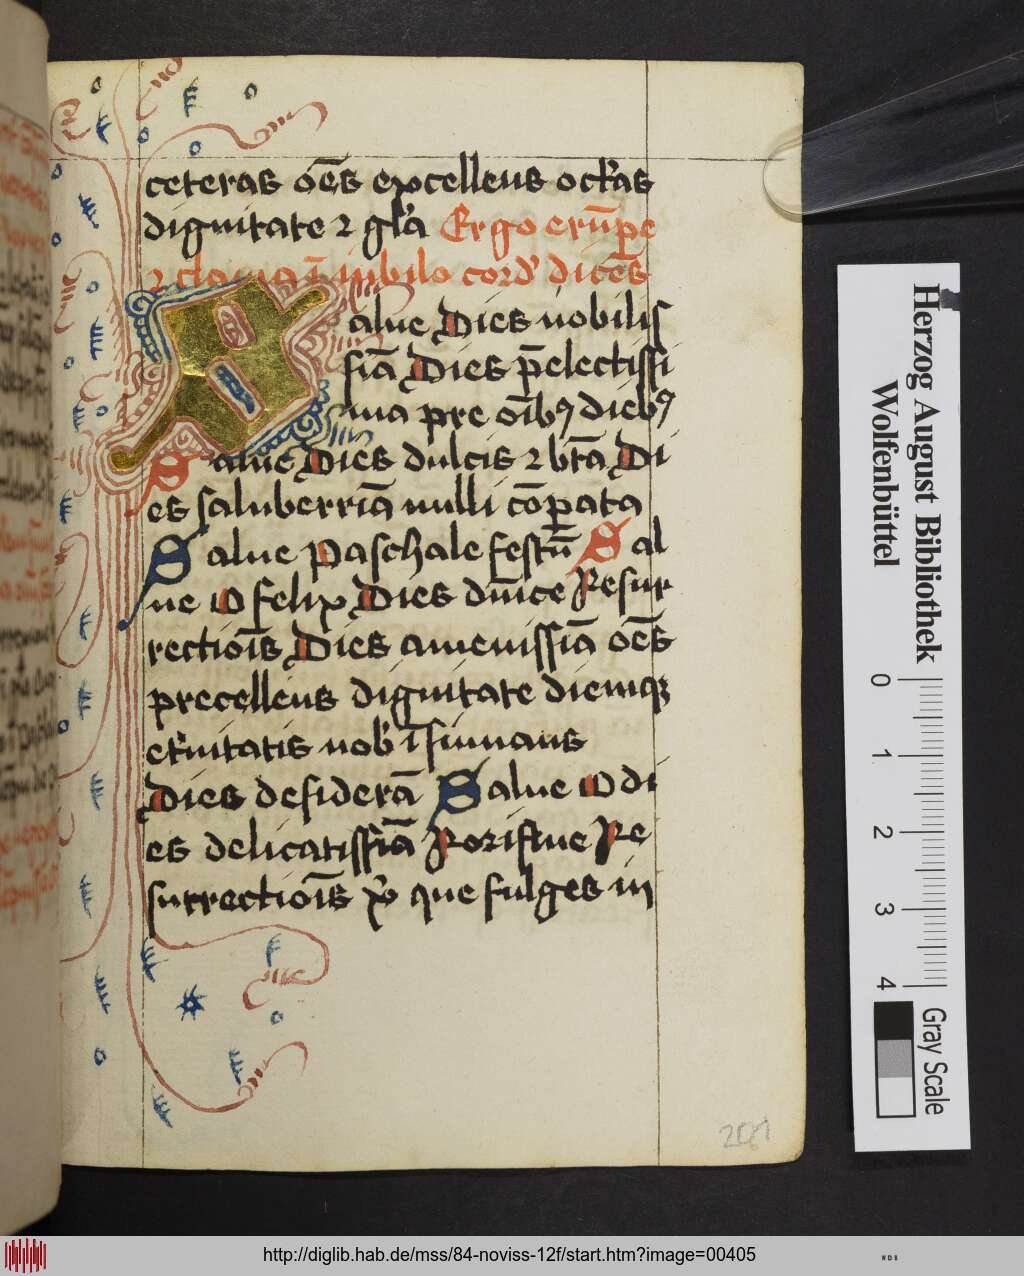 ceteras o̅es excellens octa̓s
dignitate ⁊ gl̓a Ergo eru̅pe
⁊ clama i̅ iubilo cord̓ dice̅s
Salue Dies nobilis
sia̅ Dies p̅electissi
ma pre oi̅bꝰ diebꝰ
Salue Dies dulcis ⁊ bt̅a Di
es saluberria̅ nulli co̅parata
Salue Paschale festu̅ Sal
ue O felix Dies dn̅ice Resur
rectio̅is Dies amenissia̅ o̅es
precellens dignitate diemqꝫ
et̓nitatis nob̓ i̅sinuans
Dies desidera̅ Salue O di
es delicatissia̅ Roriflue Re
surrectio̅is xp̓i que fulges in
201
Herzog August Bibliothek
Wolfenbüttel
0 1 2 3 4
Gray Scale
http://diglib.hab.de/mss/84-noviss-12f/start.htm?image=00405